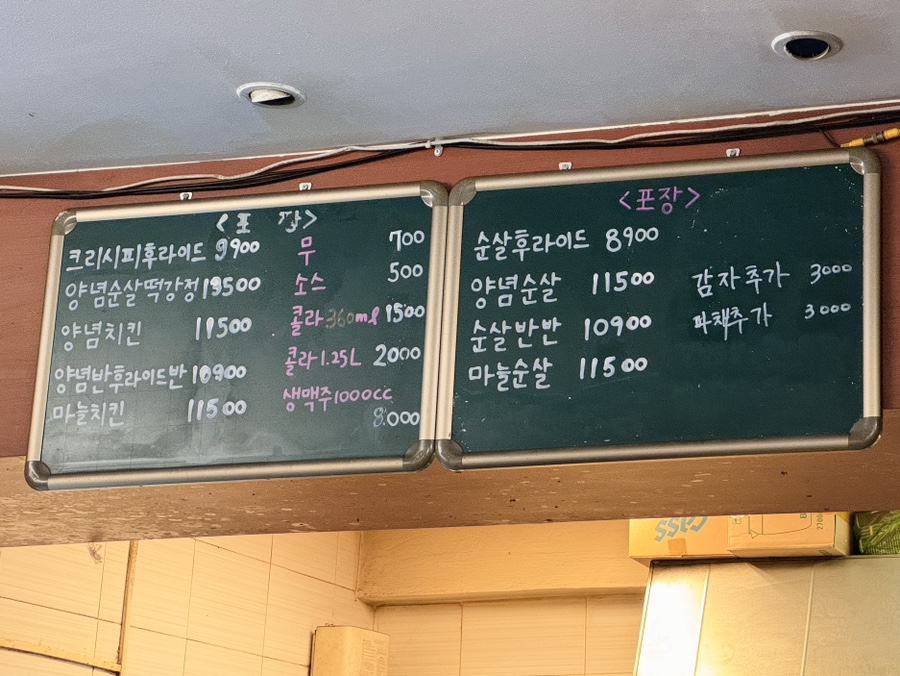 <포 장>
크리시피후라이드 9900
양념순살떡강정 13500
양념치킨 11500
양념반후라이드반 10900
마늘치킨 11500
무 700
소스 500
콜라 360ml 1500
콜라 1.25L 2000
생맥주 1000cc
8.000
<포장>
순살후라이드 8900
양념순살 11500
순살반반 10900
마늘순살 11500
감자추가 3000
파채추가 3000
Cass